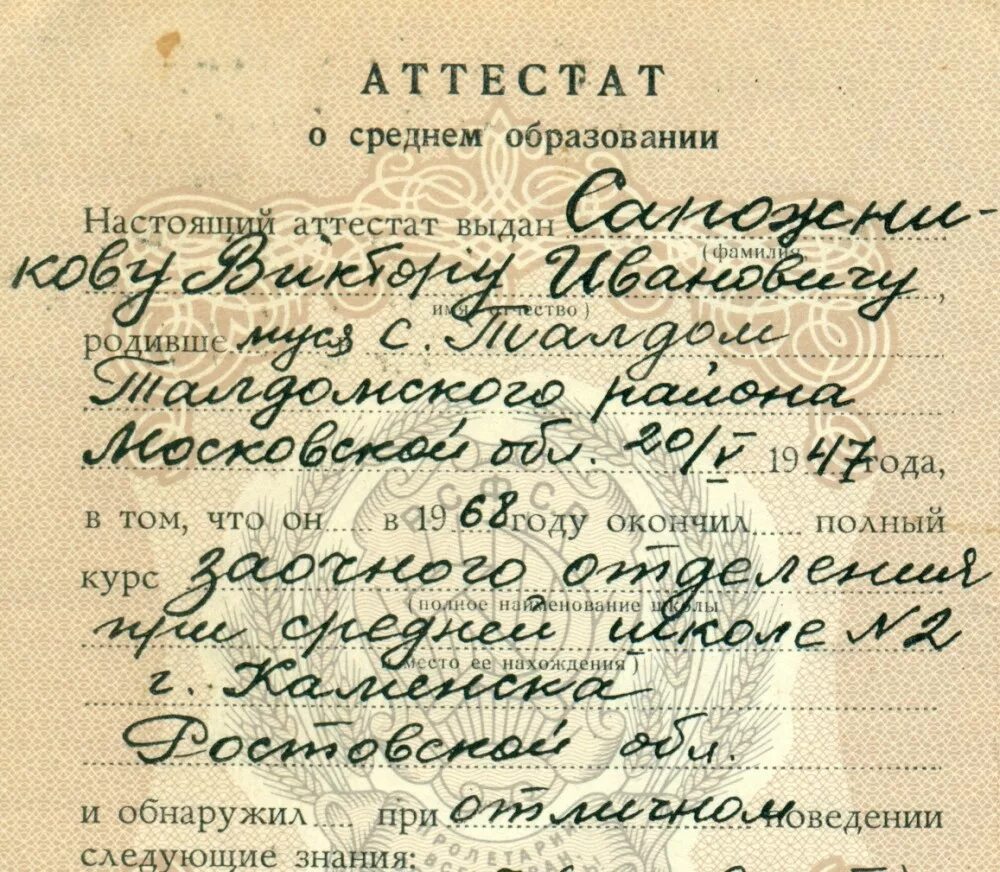 АТТЕСТАТ
о среднем образовании
Настоящий аттестат выдан Сапожни-
(фамилия,
кову Виктору Ивановичу,
имя, отчество)
родивше муся с. Талдом
Талдомского района
Московской обл. 20/V 1947 года,
в том, что он.... в 1968 году окончил..... полный
курс заочного отделения
(полное наименование школы
при средней школе N2
и место ее нахождения)
г. Каменска
Ростовской обл.
и обнаружил.... при отличном поведении
следующие знания:
РСФСР
ПРОЛЕТАРИ
ВСЕ